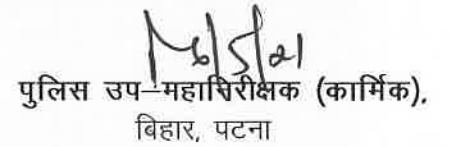 पुलिस उप–महानिरीक्षक (कार्मिक),
बिहार, पटना